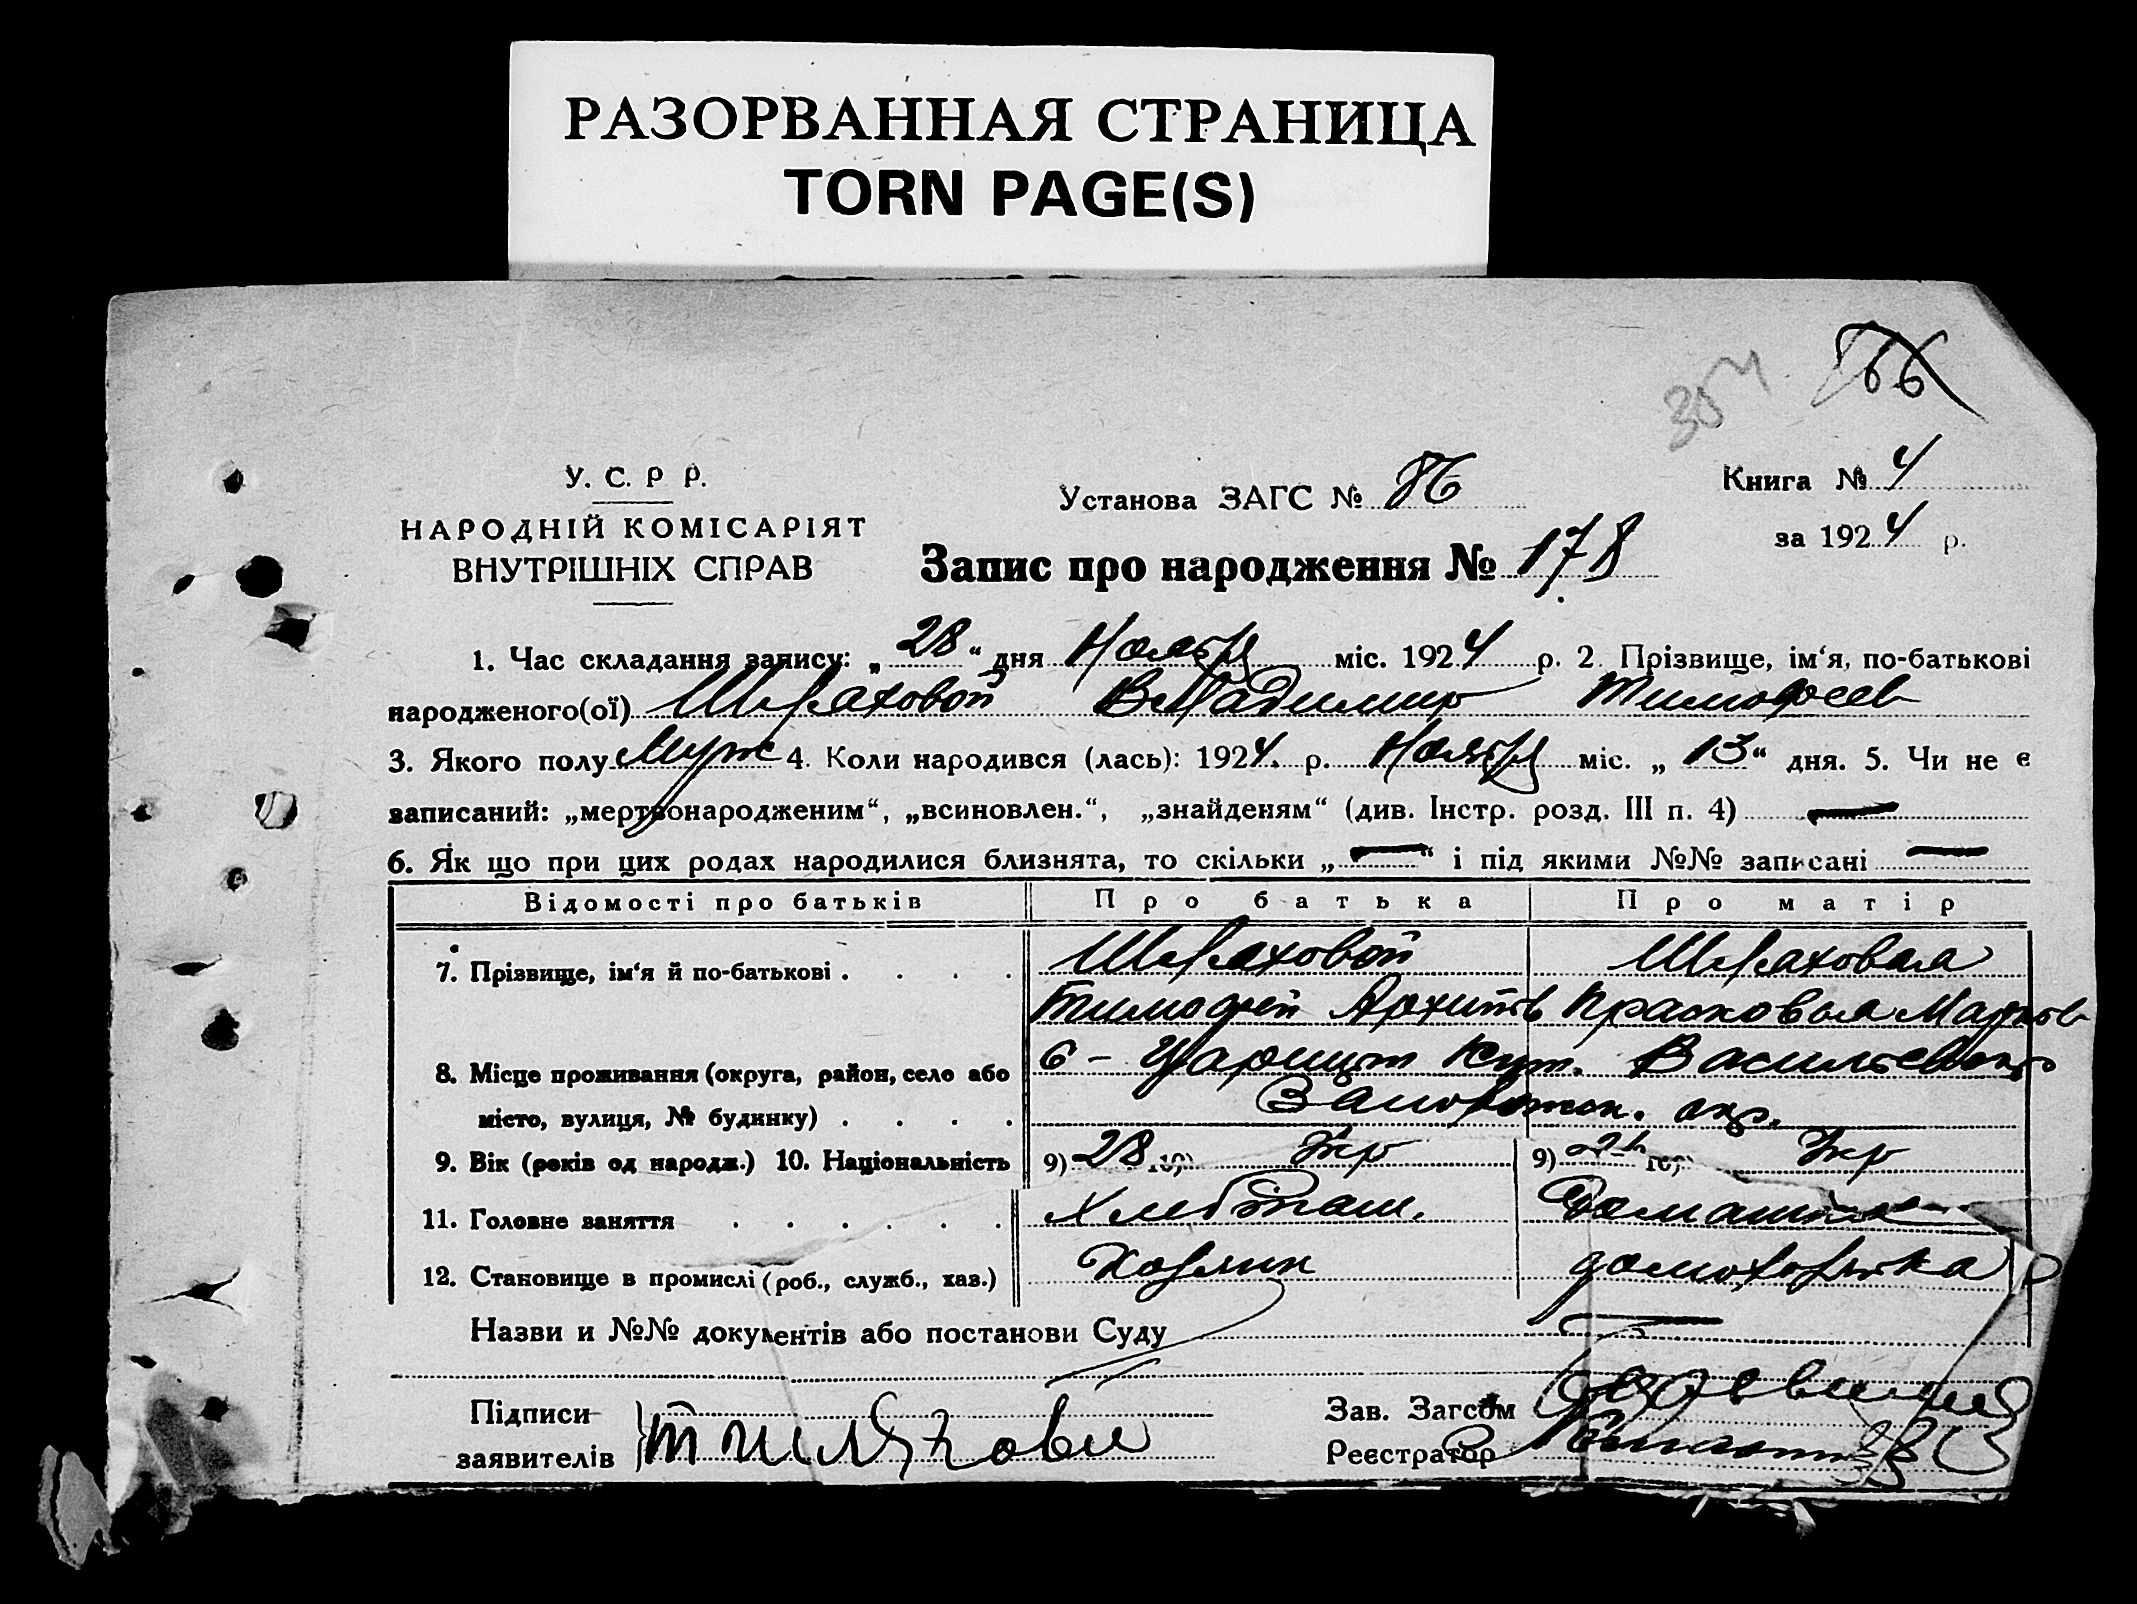 РАЗОРВАННАЯ СТРАНИЦА
TORN PAGE(S)
354
86
У. С. Р Р.
Установа ЗАГС № 86
Книга № 4
НАРОДНІЙ КОМІСАРІЯТ
за 1924 р.
ВНУТРІШНІХ СПРАВ
Запис про народження № 178
1. Час складання запису: „28“ дня Ноября міс. 1924 р. 2. Прізвище, ім‘я, по-батькові
народженого(ої) Шераховой Владимир Тимофеев
3. Якого полу Муж 4. Коли народився (лась): 1924. р. Ноября міс. „13“ дня. 5. Чи не є
записаний: „мертвонародженим“, „всиновлен.“, „знайденям“ (див. Інстр. розд. III п. 4) —
6. Як що при цих родах народилися близнята, то скільки „—“ і під якими №№ записані —
Відомості про батьків Про батька Про матір
7. Прізвище, ім‘я й по-батькові . . . . Шераховой Шераховая
Тимофей Архипов Прасковья Марков
8. Місце проживання (округа, район, село або с- Царицын Кут. Васильевск
місто, вулиця, № будинку) . . . . Запорожск. окр.
9. Вік (років од народж.) 10. Національність 9) 28 10) Укр 9) 10) Укр
11. Головне заняття . . . . . . Хлебопаш. Домашн
12. Становище в промислі (роб., служб., хаз.) Хозяин домохозяйка
Назви и №№ документів або постанови Суду —
Підписи
Зав. Загсом
заявителів
Реєстратор